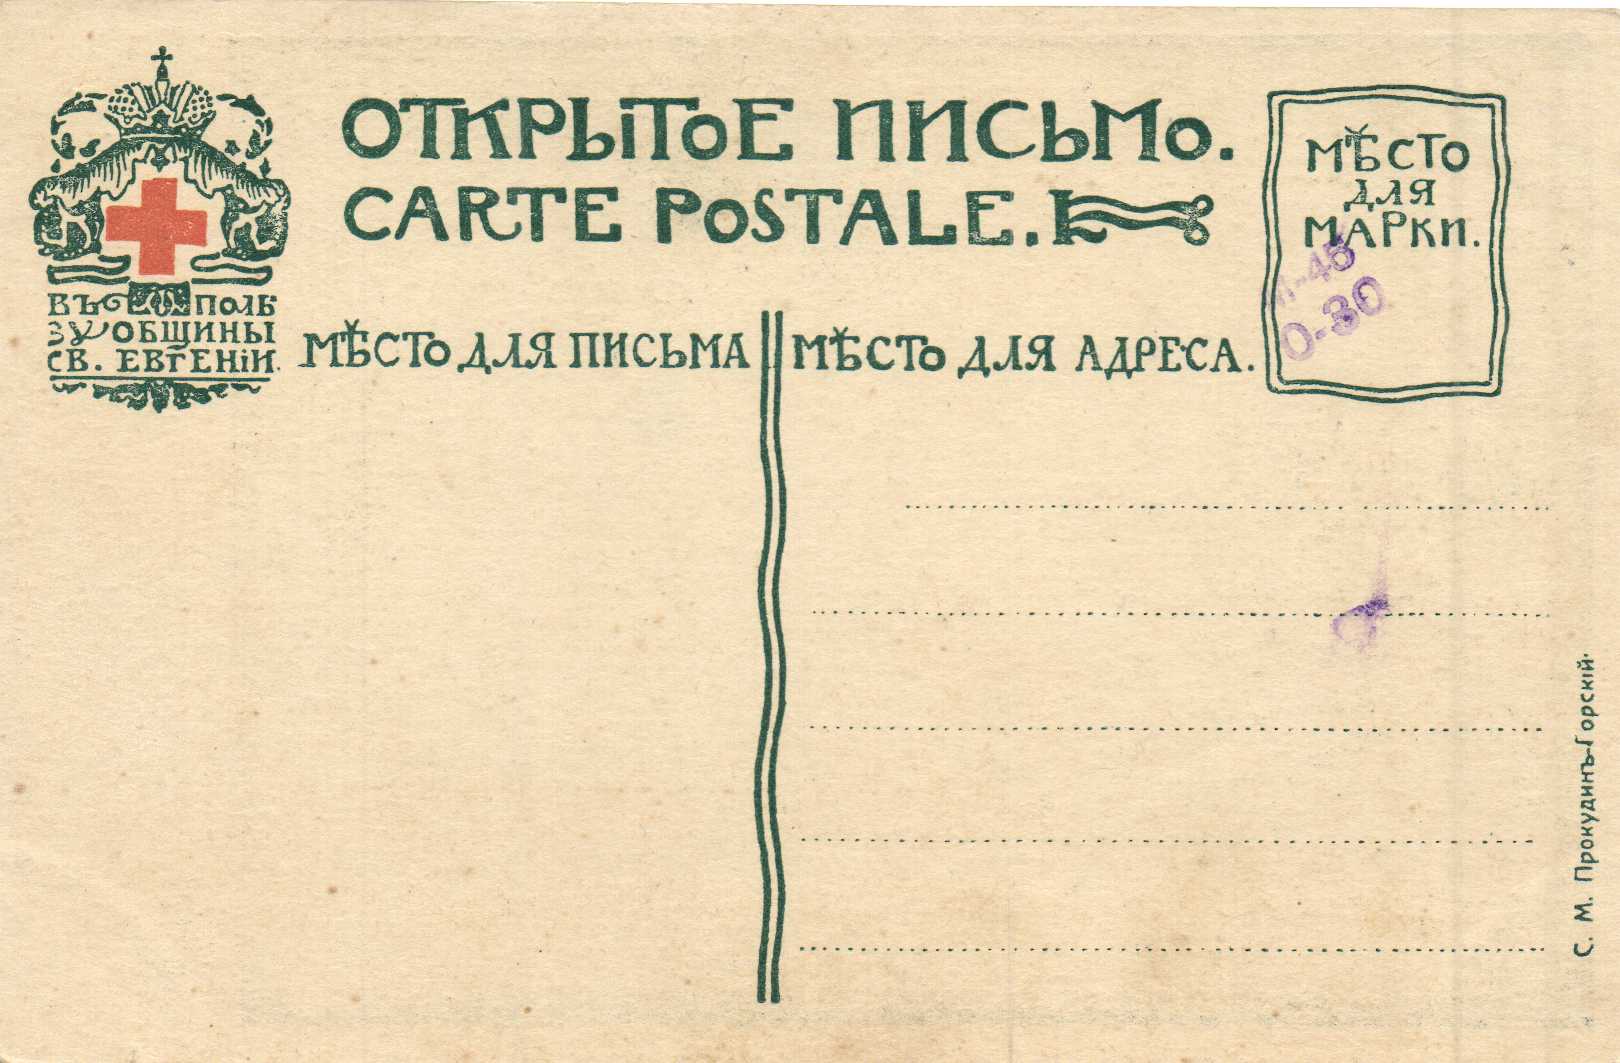 ОТКРЫТОЕ ПИСЬМО.
CARTE POSTALE.
МѢСТО
ДЛЯ
МАРКИ.
ВЪ ПОЛЬ
ЗУ ОБЩИНЫ
СВ. ЕВГЕНІИ.
МѢСТО ДЛЯ ПИСЬМА
МѢСТО ДЛЯ АДРЕСА.
-45
0-30
С. М. Прокудинъ-Горскій.